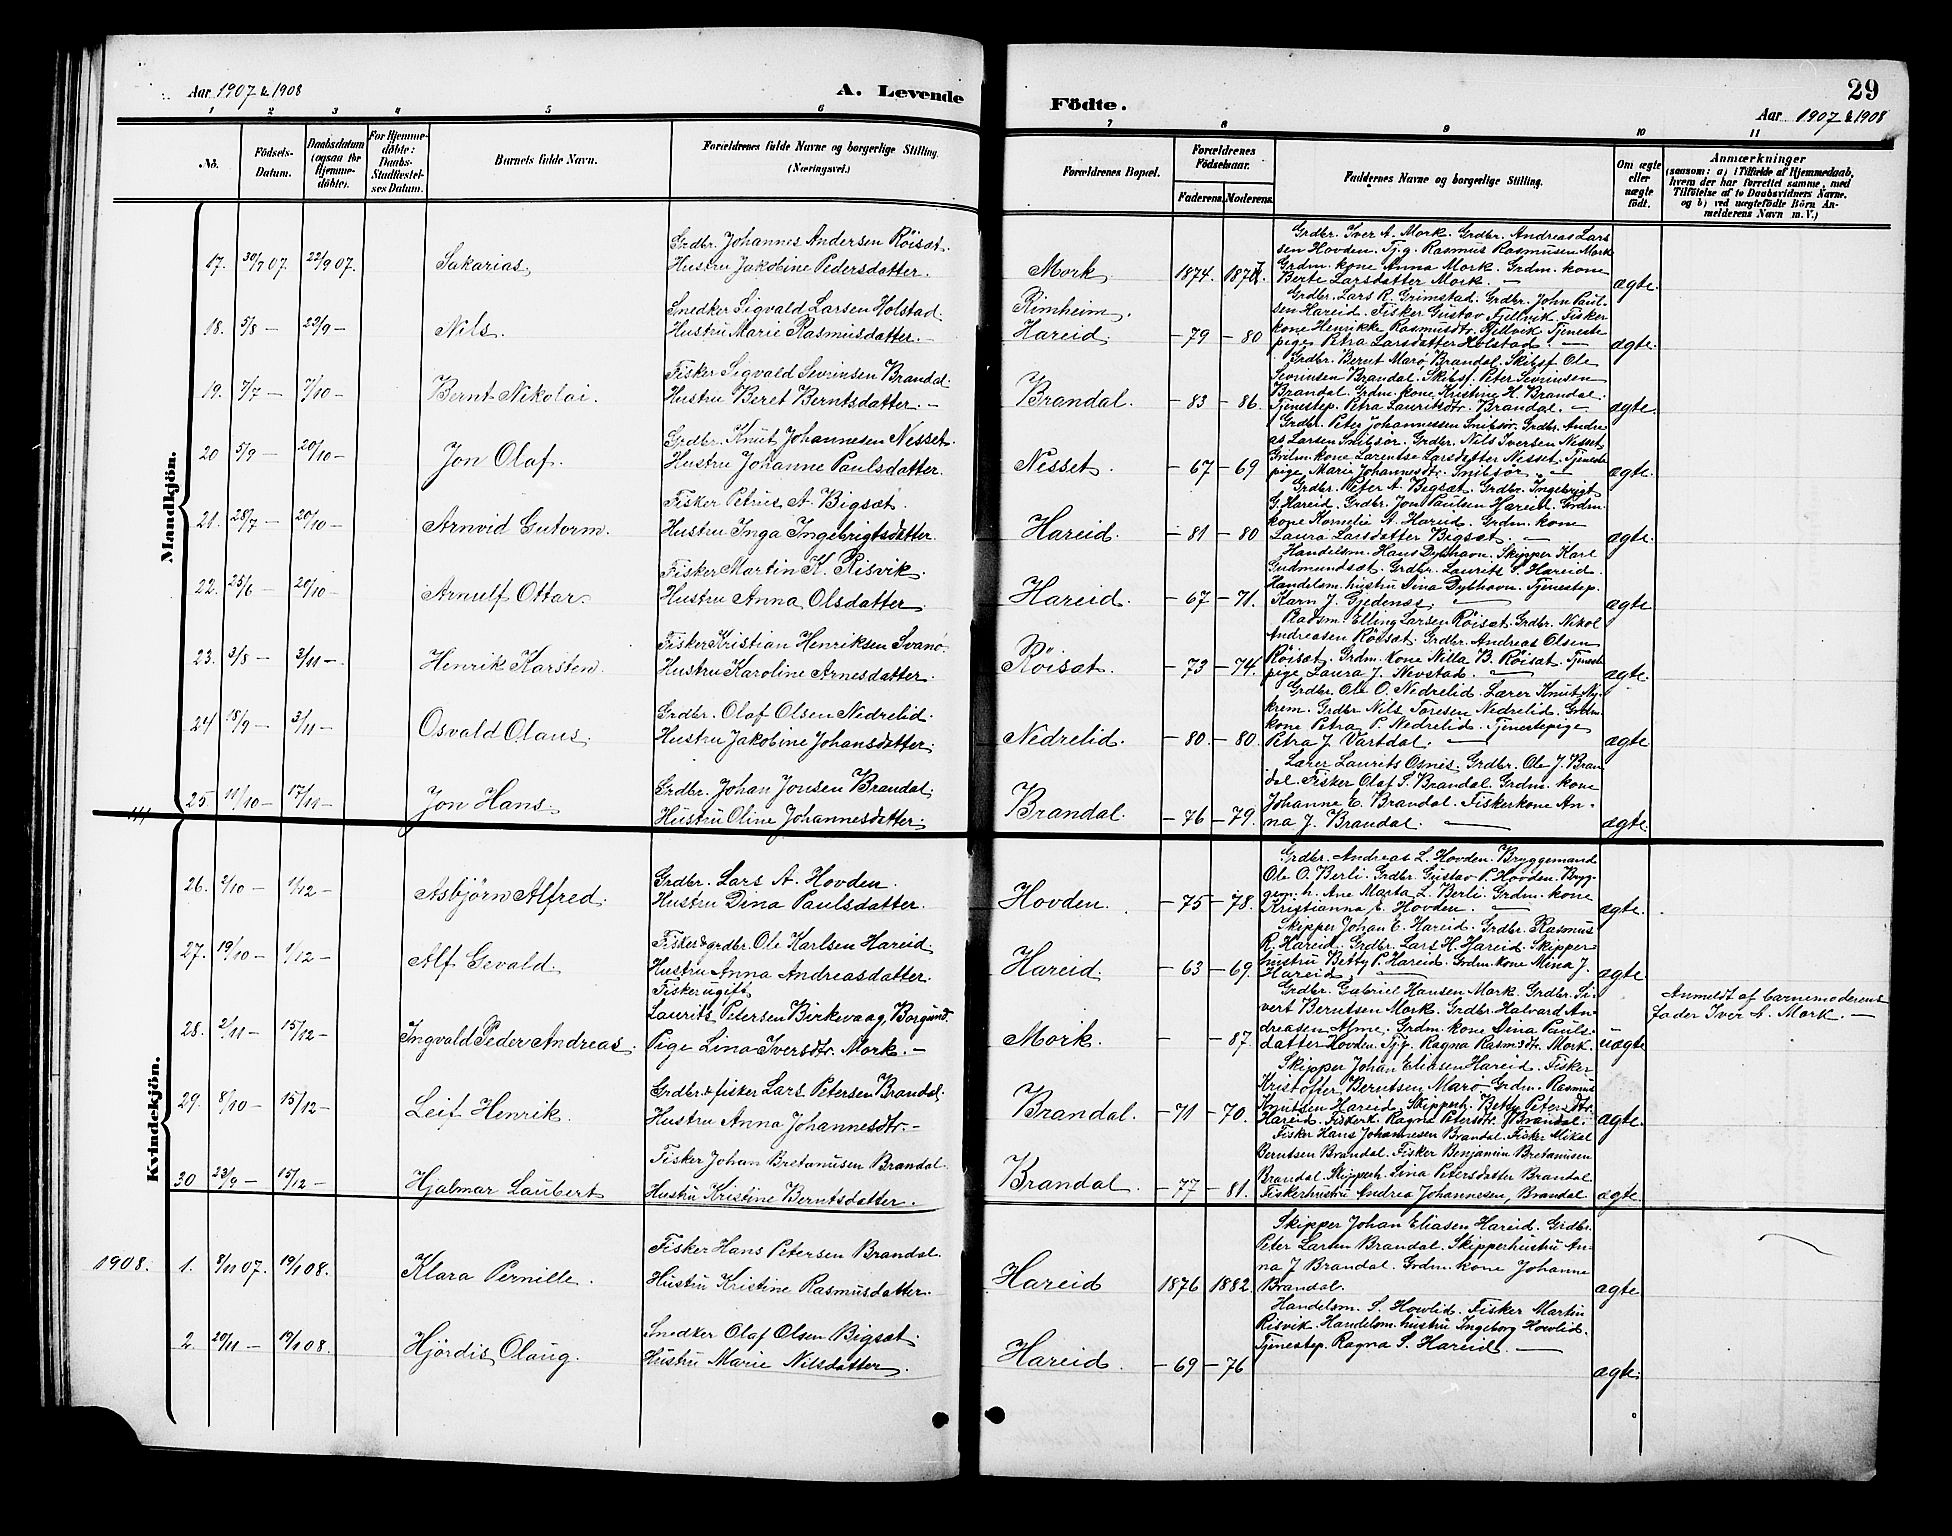 29
Aar 1907 & 1908
A. Levende Födte.
Aar 1907 & 1908
1 2 3 4 5 6 7 8 9 10 11
No.
Födsels-Datum.
Daabsdatum (ogsaa for Hjemme-döbte).
For Hjemme-döbte: Daabs-Stadfæstel-ses Datum.
Barnets fulde Navn.
Forældrenes fulde Navne og borgerlige Stilling. (Næringsvei.)
Forældrenes Bopæl.
Forældrenes Födselsaar.
Faderens. Moderens.
Faddernes Navne og borgerlige Stilling.
Om ægte eller uægte födt.
Anmærkninger
(saasom: a) i Tilfælde af Hjemmedaab, hvem der har forrettet samme, med Tilföielse af to Daabsvidners Navne, og b) ved uægtefödte Börn An-melderens Navn m. V.)
Mandkjön.
17. 30/7 07. 22/9 07. Sakarias,
Grdbr. Johannes Andersen Röiset.
Hustru Jakobine Pedersdatter.
Mork 1874. 1877.
Grdbr. Iver A. Mork. Grdbr. Andreas Lars
sen Hovden. Tj.g. Rasmus Rasmusen Mork
Grdm. kone Anna Mork. Grdm. kone
Berte Larsdatter Mork. —
ægte.
18. 5/8 — 29/9 — Nils.
Snedker Sigvald Larsen Holstad.
Hustru Marie Rasmusdatter. —
Rimheim.
Hareid. — 79 — 80
Grdbr. Lars R. Grimstad. Grdbr. John Paul-
sen Hareid. Fisker Gustav Fjellvik. Fisker
kone Henrikke Rasmusdtr. Fjellvik Tjeneste
pige Petra Larsdatter Holstad —
ægte.
19. 7/7 — 7/10 — Bernt Nikolai.
Fisker Sigvald Sevrinsen Brandal.
Hustru Beret Berntsdatter. —
Brandal. — 83 — 86.
Grdbr. Bernt Marø, Brandal. Skibsf. Ole
Sevrinsen Brandal. Skibsf. Peter Sevrinsen
Brandal. Grdm. kone Kristine H. Brandal.
Tjenestep. Petra Lauritsdtr. Brandal. —
ægte.
20 5/9 — 20/10 — Jon Olaf.
Grdbr. Knut Johannesen Nesset.
Hustru Johanne Paulsdatter.
Nesset. — 67 — 69
Grdbr. Peter Johannessen Snibsör. Grdbr. Andre
as Larsen Snibsör. Grdbr. Nils Iversen Nesset
Grdm. kone Larentse Larsdatter Nesset. Tjeneste
pige Marie Johannesdtr. Snibsör. —
ægte
21. 28/7 — 20/10 — Arnvid Gutorm.
Fisker Petrus A. Bigset.
Hustru Inga Ingebrigtsdatter.
Hareid. — 81 — 80
Grdbr. Peter A. Bigset. Grdbr. Ingebrigt
G. Hareid. Grdbr. Jon Paulsen Hareid. Grdm.
kone Kornelie A. Hareid. Grdm. kone
Laura Larsdatter Bigset. —
ægte.
22. 25/6 — 20/10 — Arnulf Ottar.
Fisker Martin K. Risvik.
Hustru Anna Olsdatter.
Hareid. — 67 — 71.
Handelsm. Hans Dybhavn. Skipper Karl
Gudmundset. Grdbr. Laurits S. Hareid.
Handelsm. hustru Sina Dybhavn. Tjenestep.
Karn J. Gjedenes. —
ægte
23. 3/8 — 3/11 — Henrik Karsten.
Fisker Kristian Henriksen Svanø.
Hustru Karoline Arnesdatter.
Röiset. — 73 — 74.
Baadsm. Elling Larsen Röiset. Grdbr. Nikol
Andreasen Röiset. Grdbr. Andreas Olsen
Röiset. Grdm. kone Nilla B. Röiset. Tjeneste
pige Laura J. Nevstad. —
ægte.
24 18/9 — 3/11 — Osvald Olaus.
Grdbr. Olaf Olsen Nedrelid.
Hustru Jakobine Johansdatter.
Nedrelid. — 80. — 80.
Grdbr. Ole O. Nedrelid. Lærer Knut My-
krem. Grdbr. Nils Toresen Nedrelid. Grdm.
kone Petra P. Nedrelid. Tjenestepige
Petra J. Vartdal. —
ægte
25 11/10 — 17/11 — Jon Hans.
Grdbr. Johan Jonsen Brandal.
Hustru Oline Johannesdatter.
Brandal. — 76 — 79.
Lærer Laurits Osnes. Grdbr. Ole J. Bran
dal. Fisker Olaf S. Brandal. Grdm. kone
Johanne E. Brandal. Fiskerkone An-
na J. Brandal. —
ægte.
Kvindekjön.
26. 2/10 — 1/12 — Asbjörn Alfred.
Grdbr. Lars A. Hovden.
Hustru Dina Paulsdatter.
Hovden. — 75 — 78.
Grdbr. Andreas L. Hovden. Bryggemand
Ole O. Berli. Grdbr. Gustav P. Hovden. Bryg-
gem. h. Ane Marta L. Berli. Grdm. kone
Kristianna E. Hovden. —
ægte.
27. 19/10 — 1/12 — Alf Gevald.
Fisker & grdbr. Ole Karlsen Hareid.
Hustru Anna Andreasdatter.
Hareid. — 63 — 69.
Skipper Johan E. Hareid. Grdbr. Rasmus
R. Hareid. Grdbr. Lars H. Hareid. Skipper-
hustru Betty P. Hareid. Grdm. kone Mina J.
Hareid. —
ægte.
28. 2/11 — 15/12 — Ingvald Peder Andreas.
Fisker ugift
Laurits Petersen Birkevaag, Borgund.
Pige Lina Iversdtr. Mork. —
Mork. — — 87.
Grdbr. Gabriel Hansen Mork. Grdbr. Si-
vert Berntsen Mork. Grdbr. Halvard An-
dreasen Alme. Grdm. kone Dina Pauls-
datter Hovden. Tj. Ragna Rasmsdtr. Mork.
uægte
Anmeldt af barnemoderens
fader Iver L. Mork. —
29. 8/10 — 15/12 — Leif Henrik.
Grdbr. & fisker Lars Petersen Brandal.
Hustru Anna Johannesdtr. —
Brandal. — 71 — 70.
Skipper Johan Eliasen Hareid. Fisker
Kristoffer Berntsen Marø. Grdm. Rasmus
Knutsen Hareid. Skipperh. Betty Petersdtr.
Hareid. Fiskerk. Ragna Petersdtr. Brandal.
ægte.
30 23/9 — 15/12 — Hjalmar Laubert
Fisker Johan Bretanusen Brandal.
Hustru Kristine Berntsdatter.
Brandal. — 77 — 81.
Fisker Hans Johannesen Brandal. Fisker Mikal
Berntsen Brandal. Fisker Benjamin Bretanusen
Brandal. Skipperh. Sina Petersdatter Brandal
Fiskerhustru Andrea Johannesen, Brandal
ægte.
1908. 1. 8/11 07. 19/1 08. Klara Pernille.
Fisker Hans Petersen Brandal.
Hustru Kristine Rasmusdatter.
Hareid 1876 1882.
Skipper Johan Eliasen Hareid. Grdbr.
Peter Larsen Brandal. Skipperhustru An-
na J Brandal. Grdm. kone Johanne
Brandal.
ægte
2. 20/11 — 19/1 08. Hjördis Olaug.
Snedker Olaf Olsen Bigset.
Hustru Marie Nilsdatter.
Hareid. — 69 — 76
Handelsm. S. Howlid. Fisker Martin
Risvik. Handelsm. hustru Ingeborg Howlid.
Tjenestep. Ragna S. Hareid. —
ægte.